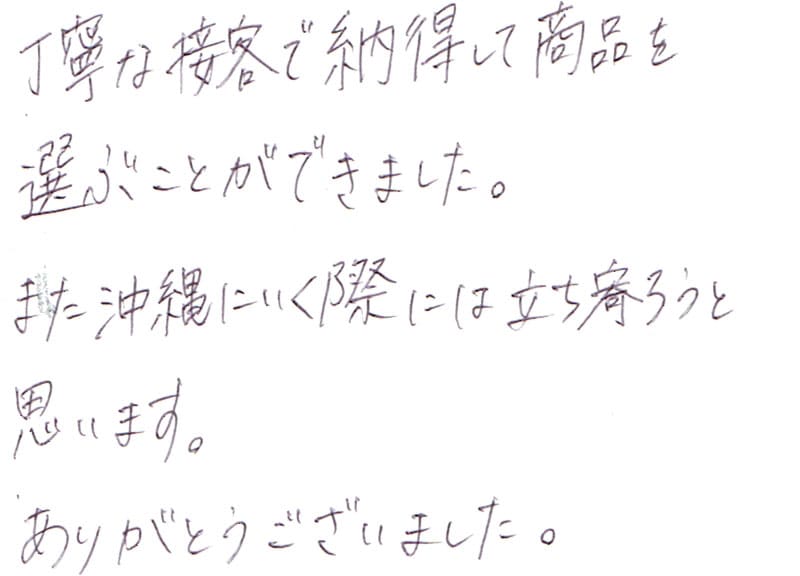 丁寧な接客で納得して商品を
選ぶことができました。
また沖縄にいく際には立ち寄ろうと
思います。
ありがとうございました。